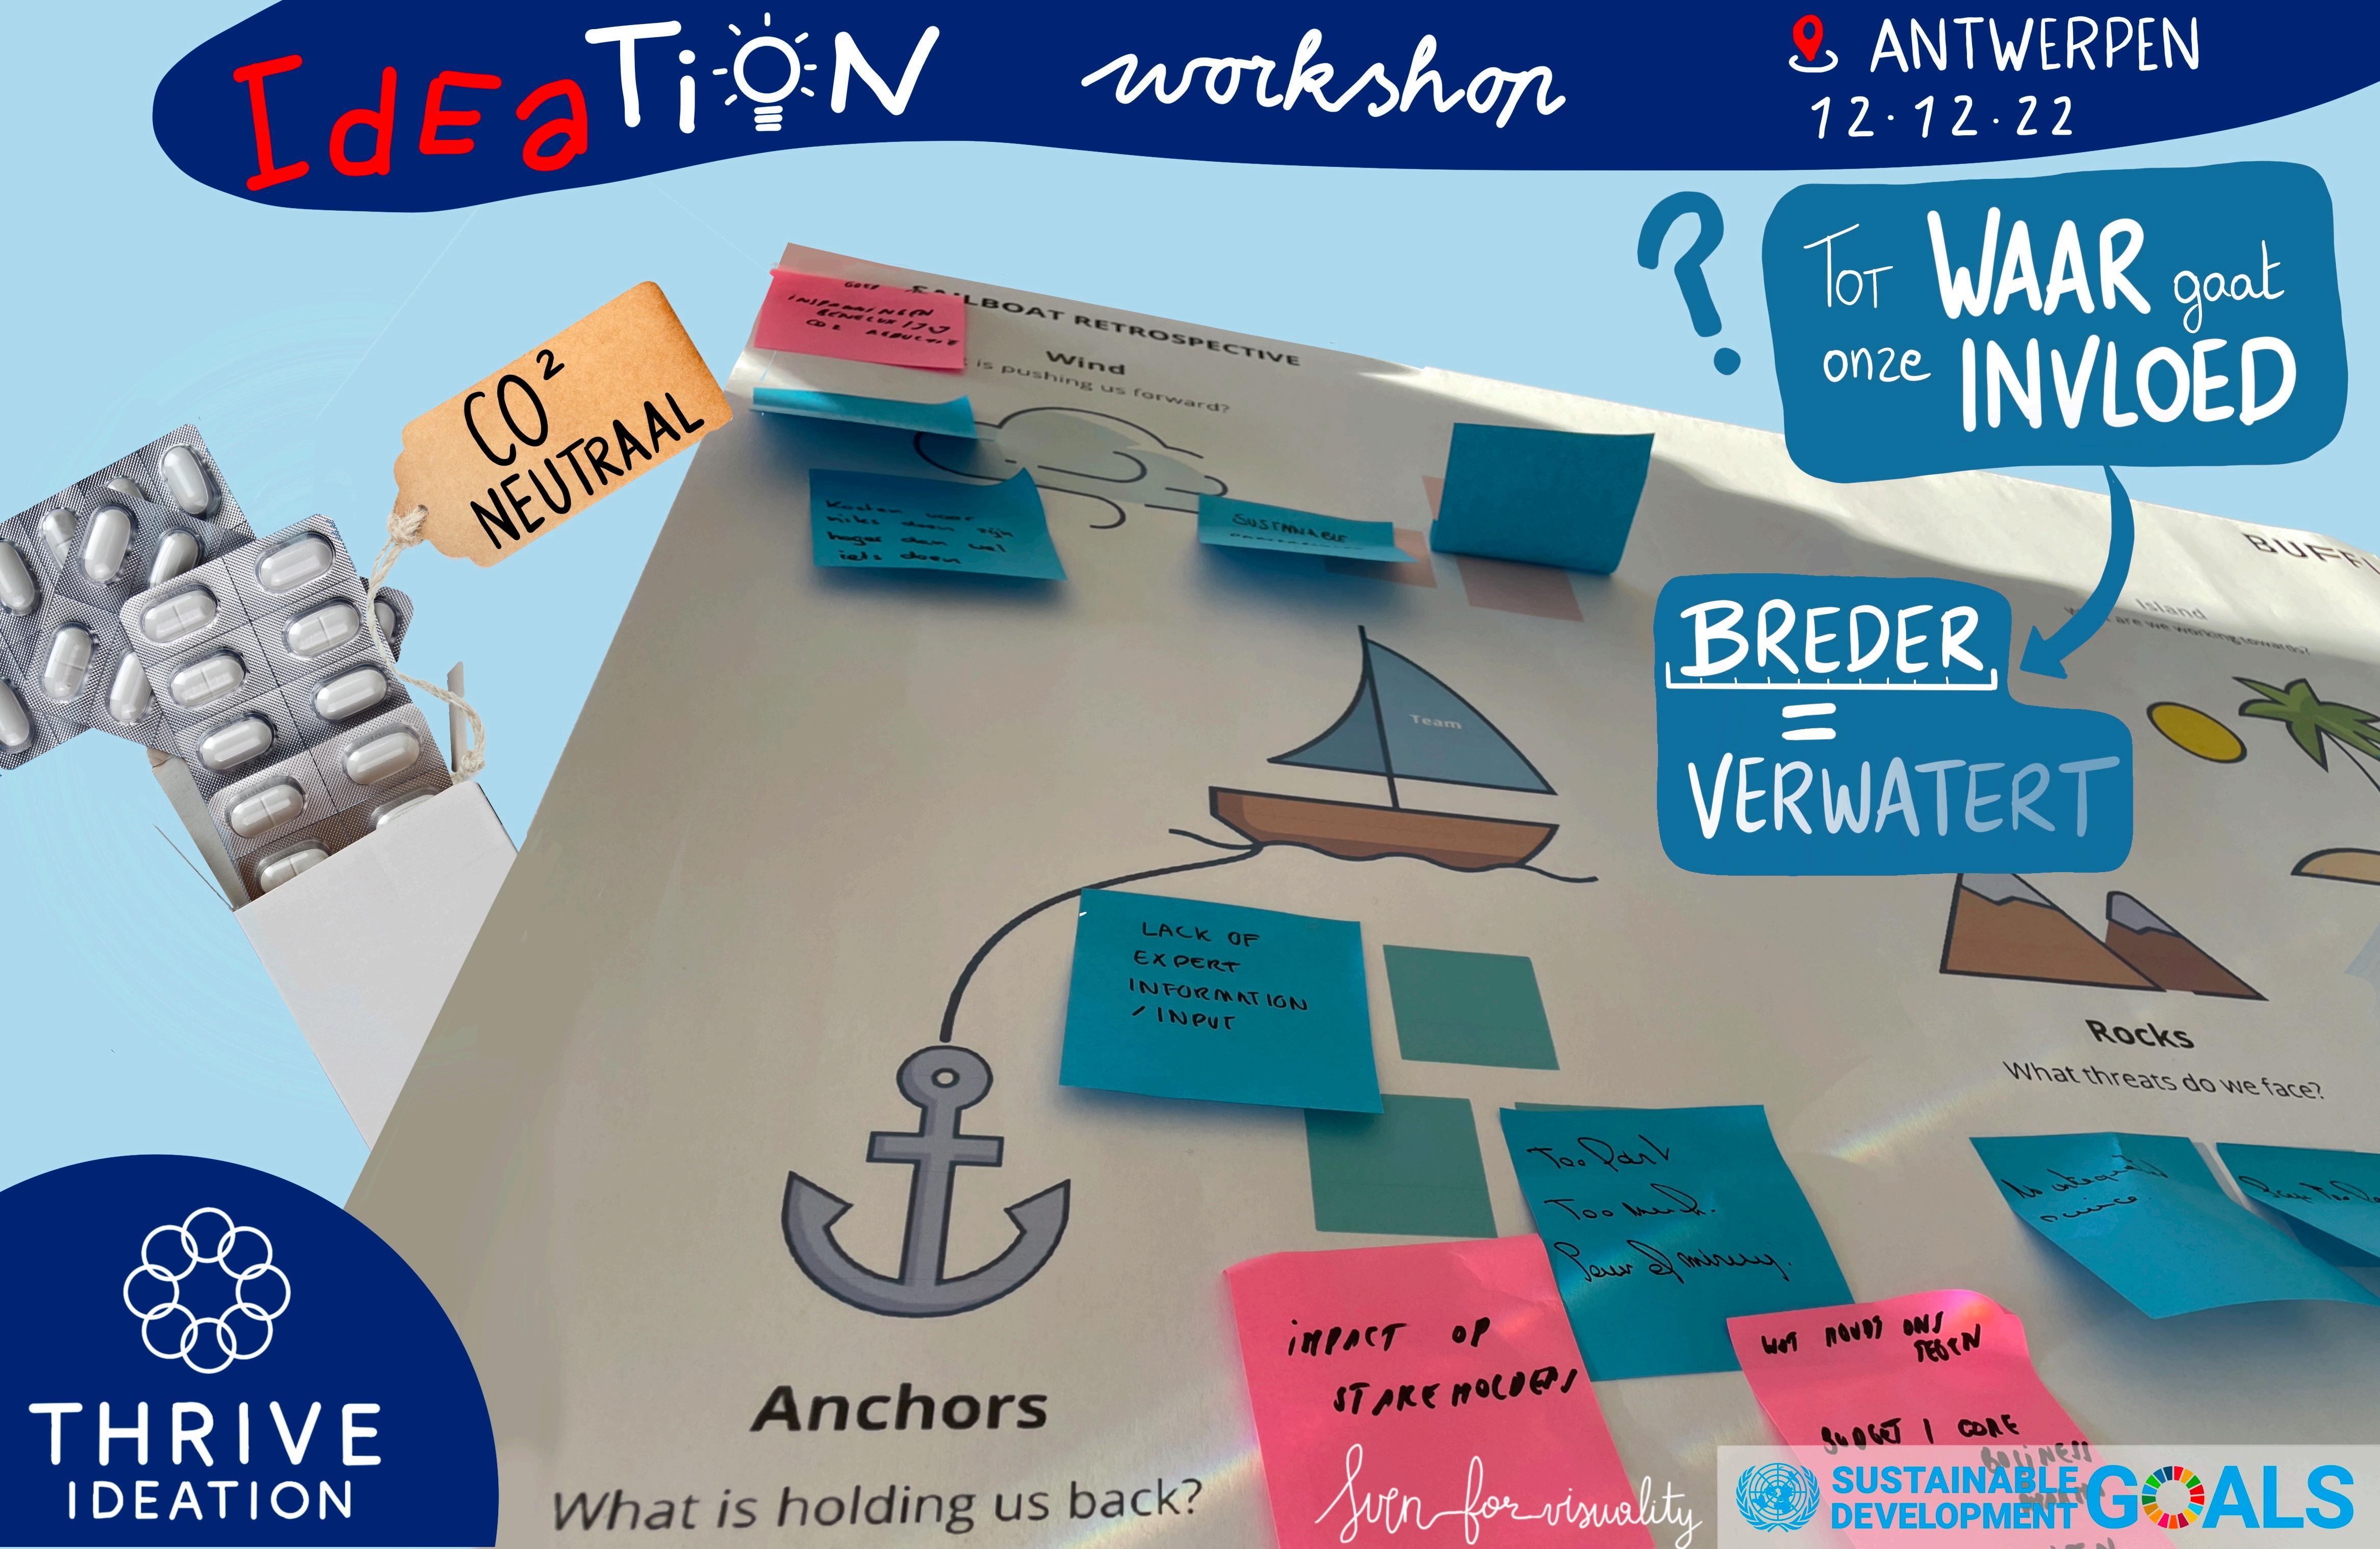 IdEaTiON workshop
ANTWERPEN
12.12.22
TOT WAAR gaat
onze INVLOED
?
CO²
NEUTRAAL
SAILBOAT RETROSPECTIVE
Wind
is pushing us forward?
CO2 REDUCTIE
Kosten voor
niks doen zijn
hoger dan wel
iets doen
SUSTAINABLE
BREDER
=
VERWATERT
Island
are we working towards?
Team
LACK OF
EXPERT
INFORMATION
/ INPUT
Rocks
What threats do we face?
Too
Too much.
iMPACT OP
STAKEHOLDERS
WAT HOUDT ONS
TEGEN
BUDGET / CORE
BUSINESS
Anchors
What is holding us back?
THRIVE
IDEATION
Sven for visuality
SUSTAINABLE
DEVELOPMENT GOALS